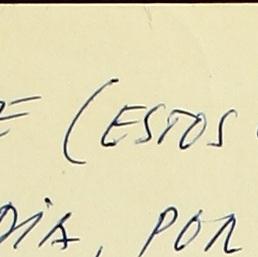 (ESTOS
DIA, POR